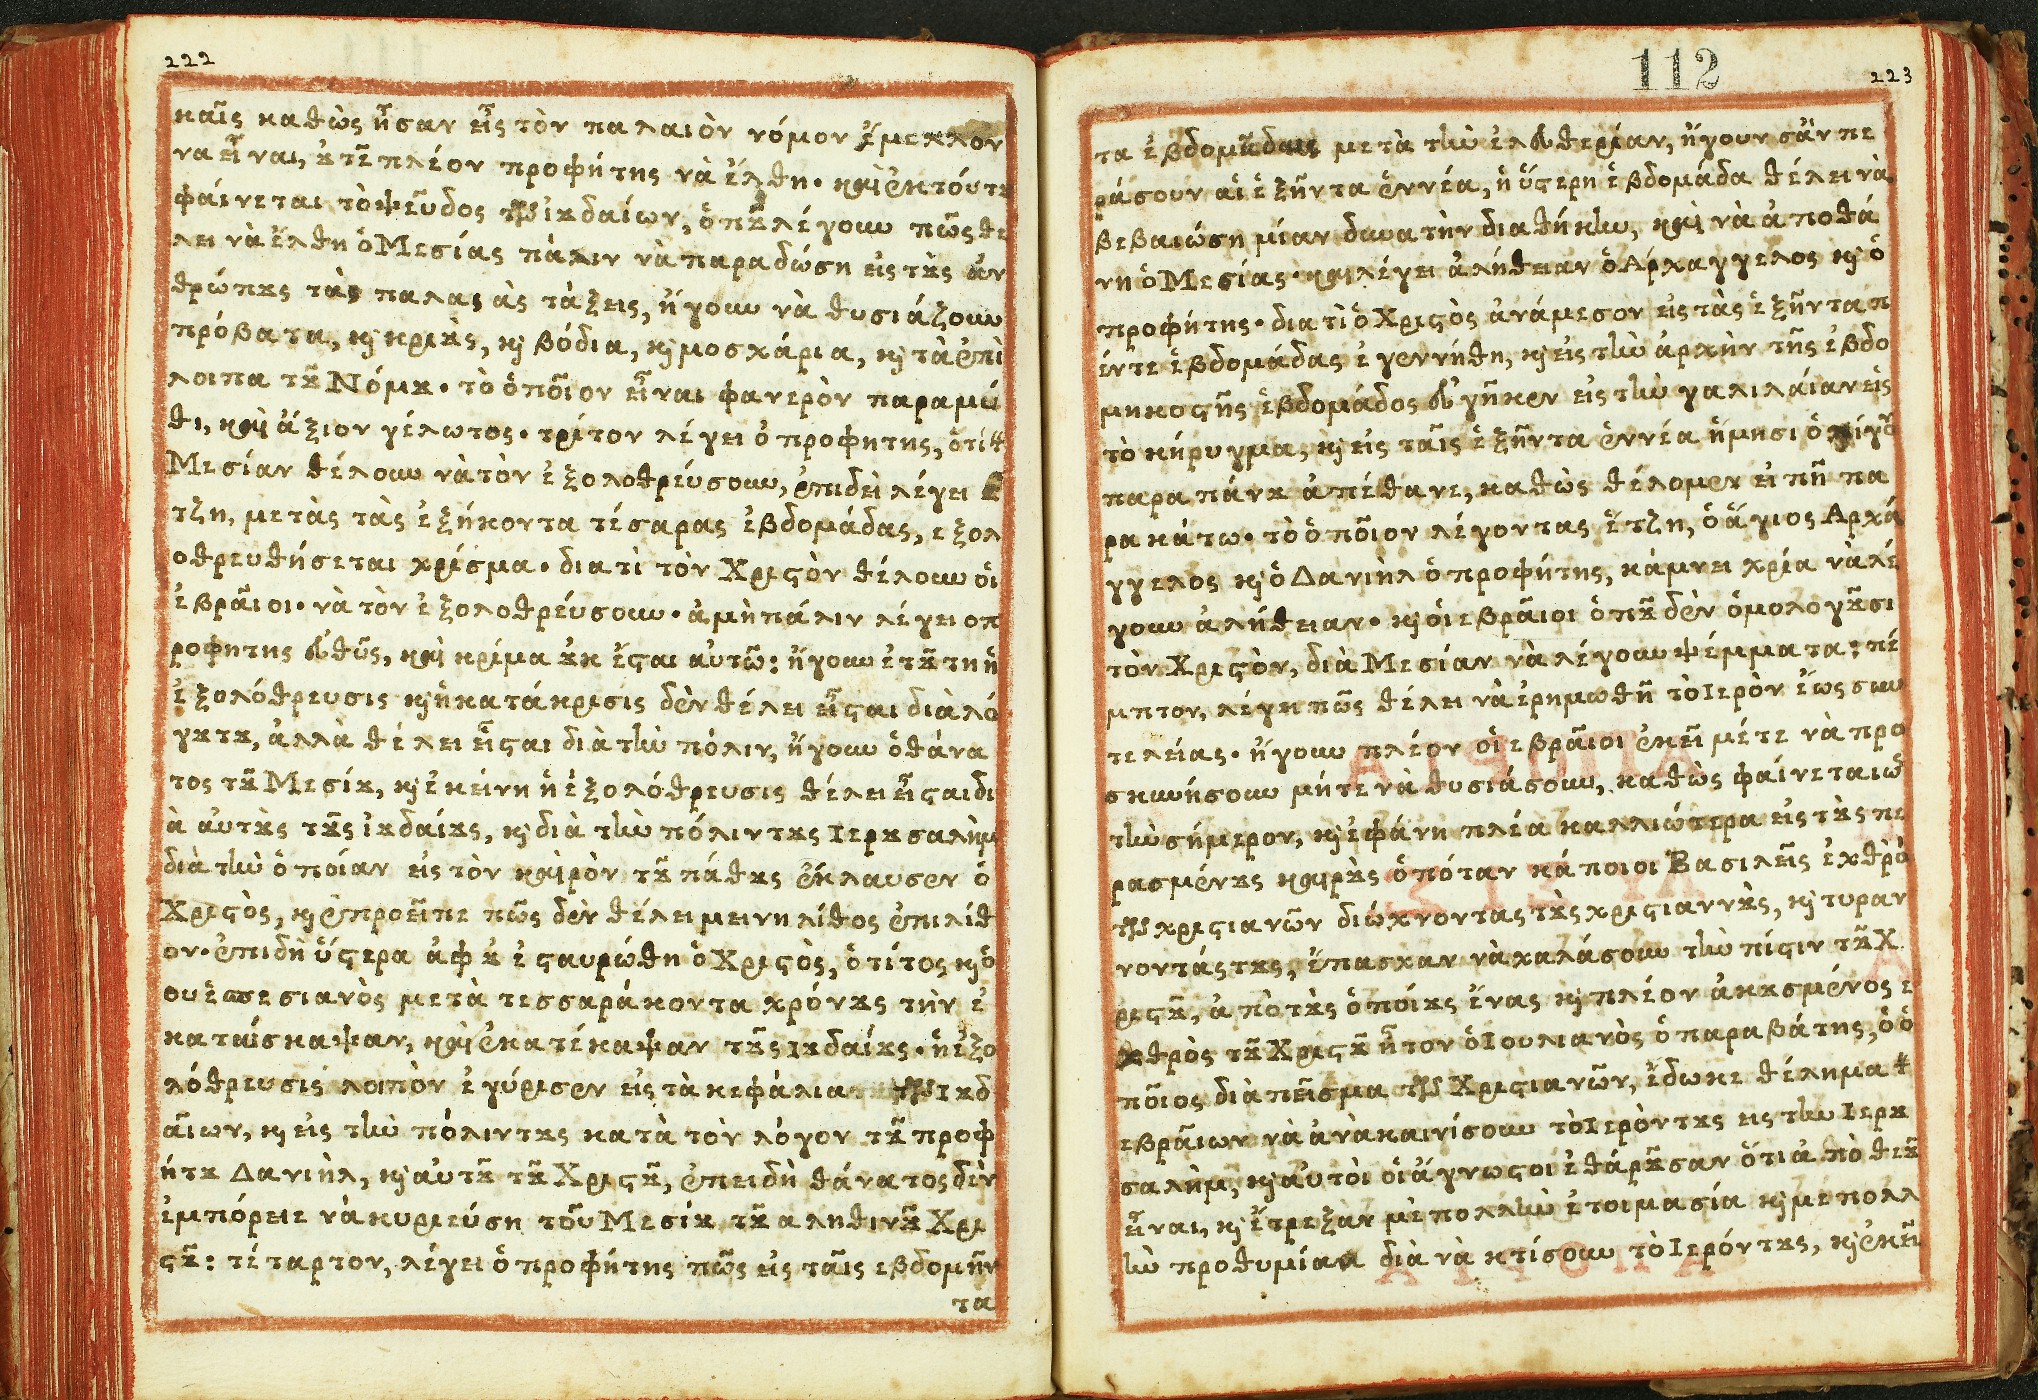 222
καῖς καθὼς ἦσαν εἶς τὸν παλαιὸν νόμον ἔμελλον
να εἶναι, ȣ̓τε πλέον προφήτης νὰ ἔλθη· καὶ ἐκ τόυτȣ
φάινεται τὸ ψεῦδος τῶν ἰȣδαίων, ὁπȣ̃ λέγουν πῶς θε
λει νὰ ἔλθη ὁ Μεσίας πάλιν νὰ παραδώση εἰς τȣ̀ς ἀν
θρώπȣς τὰς παλαιὰς τάξεις, ἤγουν νὰ θυσιάζουν
πρόβατα, κ̀ κριȣ̀ς, κ̀ βόδια, κ̀ μοσχάρια, κ̀ τὰ ἐπὶ
λοιπα τȣ̃ Νόμȣ· τὸ ὁποῖον εἶναι φανερὸν παραμύ
θι, καὶ ἄξιον γέλωτος· τρίτον λέγει ὁ προφητης, ὁτί τ
Μεσίαν θέλουν νὰ τὸν ἐξολοθρέυσουν, ἐπιδεὶ λέγει ἔ
τζη, μετὰς τὰς ἑξήκοντα τέσαρας ἑβδομάδας, εξολ
οθρευθήσεται χρίσμα· διατὶ τὸν Χριϛὸν θέλουν ὁι
ἑβραῖοι· νὰ τὸν ἐξολοθρέυσουν· ἀμὴ πάλιν λέγει ο π
ροφητης ευθῦς, καὶ κρίμα ȣκ ἔϛαι ἀυτῶ: ἤγουν ἐτȣ̃τη ἡ
ἐξολόθρευσις κ̀ ἡ κατάκρισις δὲν θέλει εἶϛαι διαλό
γȣτȣ, ἀλλὰ θέλει εἶϛαι διὰ τὴν πόλιν, ἤγουν ὁ θάνα
τος τȣ̃ Μεσίȣ, κ̀ ἐκείνη ἡ ἐξολόθρευσις θέλει εἶϛαι δι
ὰ ἀυτȣ̀ς τȣ̃ς ἰȣδαίȣς, κ̀ διὰ τὴν πόλιντȣς Ιερȣσαλὴμ
διὰ τὴν ὁποίαν εἰς τὸν καιρὸν τȣ̃ πάθȣς ἔκλαυσεν ὁ
Χριϛὸς, κ̀ ἐπροεῖπε πῶς δὲν θέλει μεινη λίθος ἐπι λίθ
ον· ἐπιδὴ ὕϛερα ἀφ ȣ̃ ἐϛαυρώθη ὁ Χριϛὸς, ὁ τίτος κ̀ ὁ
ουεσπεσιανὸς μετὰ τεσσαράκοντα χρόνȣς τὴν ἐ
κατάισκαψαν, καὶ ἐκατέκαψαν τȣ̃ς Ιȣδαίȣς· ἡ ἐξο
λόθρευσις λοιπὸν ἐγύρισεν εἰς τὰ κεφάλια τῶν Ιȣδ
αίων, κ̀ εἰς τὴν πόλιντȣς κατὰ τὸν λόγον τȣ̃ προφ
ήτȣ Δανιὴλ, κ̀ αὐτȣ̃ τȣ̃ Χριϛȣ̃, ἐπειδὴ θάνατος δὲν
ἐμπόρειε νὰ κυριεύση τοῦ Μεσίȣ τȣ̃ αληθινȣ̃ Χρι
ϛȣ̃: τέταρτον, λέγει ὁ προφήτης πῶς εἰς τᾶις εβδομῆν
τα
112
223
τα ἑβδομάδαις μετὰ τὴν ἐλευθερίαν, ἤγουν σἂν πε
ράσουν αἱ ἑξῆντα ἐννέα, ἡ ὕϛερη ἑβδομάδα θέλει νὰ
βεβαιώση μίαν δυνατὴν διαθήκην, καὶ νὰ ἀποθά
νη ὁ Μεσίας· καὶ λέγει ἀλήθειαν ὁ Αρχαγγελος κ̀ ὁ
προφήτης· διατὶ ὁ Χριϛὸς ἀνάμεσον εἰς τὰς ἑξῆντα π
έντε ἑβδομάδας ἐγεννήθη, κ̀ εἰς τὴν ἀρχὴν τῆς ἑβδο
μηκοϛῆς ἑβδομάδος ευγῆκεν εἰς τὴν γαλιλάιαν εἰς
τὸ κήρυγμα, κ̀ εἰς τᾶις ἑξῆντα ἐννέα ἥμησι ὀλίγο
παραπάνȣ ἀπέθανε, καθὼς θέλομεν εἰπῆ πα
ρακάτω· τὸ ὁποῖον λέγοντας ἔτζη, ὁ ἅγιος Αρχά
γγελος κ̀ ὁ Δανιὴλ ὁ προφήτης, κάμνει χρία νὰ λέ
γουν ἀλήθειαν· κ̀ ὁι εβραῖοι ὁπȣ̃ δὲν ὁμολογȣ̃σι
τὸν Χριϛὸν, διὰ Μεσίαν νὰ λέγουν ψέμματα: πέ
μπτον, λέγει πῶς θέλει νὰ ἐρημωθῆ τὸ Ιερὸν ἕως συν
τελείας· ἤγουν πλέον ὁι εβραῖοι ἐκεῖ μέτε νὰ προ
σκυνήσουν μήτε νὰ θυσιάσουν, καθὼς φάινεται ὡς
τὴν σήμερον, κ̀ ἐφάνη πλέα καλλιώτερα εἰς τȣ̀ς πε
ρασμένȣς καιρȣ̀ς ὁπόταν κάποιοι Βασιλεῖς ἐχθρὸ
τῶν χριϛιανῶν διώχνοντας τȣ̀ς χριϛιαννȣ̀ς, κ̀ τυραν
νοντάς τȣς, ἔπασχαν νὰ χαλάσουν τὴν πίϛιν τȣ̃ Χ
ριϛȣ̃, ἀπὸ τȣ̀ς ὁποίȣς ἕνας κ̀ πλέον ἀκȣσμένος ε
χθρὸς τȣ̃ Χριϛȣ̃ ἦτον ὁ Ιουλιανὸς ὁ παραβάτης, ὁ ὁ
ποῖος διὰ πεῖσμα τῶν Χριϛιανῶν, ἔδωκε θέλημα τ
εβραίων νὰ ἀνακαινίσουν τὸ Ιερόντȣς εις τὴν Ιερȣ
σαλὴμ, κ̀ αὐτὸι ὁι ἄγνωϛοι ἐθάρȣ̃σαν ὅτι ἀπὸ θεȣ̃
εἶναι, κ̀ ἔτρεξαν μὲ πολλὴν ἑτοιμασία κ̀ με πολλ
ὴν προθυμίαν διὰ νὰ κτίσουν τὸ Ιερόντȣς, κ̀ ἐκεῖ